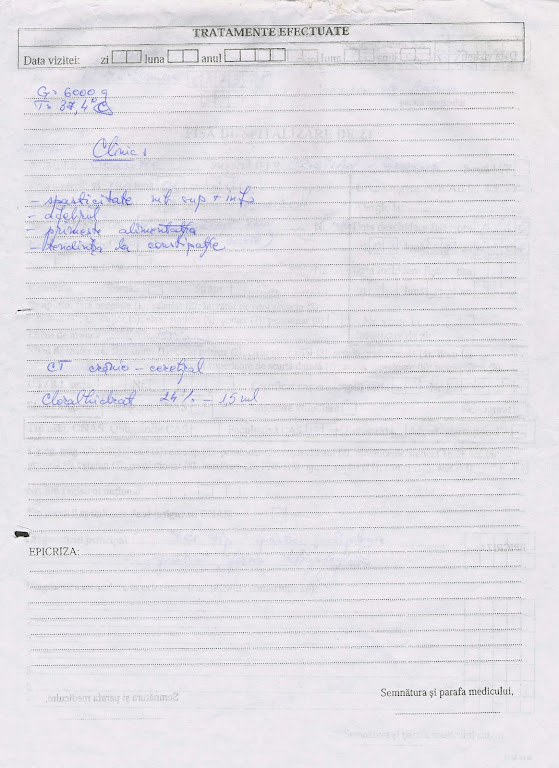 TRATAMENTE EFECTUATE
Data vizitei: zi luna anul
G= 6000 g
T= 37,4°C
Clinic:
- spasticitate mb. sup + inf.
- afebril
- primeste alimentatia
- tendinţa la constipaţie
CT cranio - cerebral
Cloralhidrat 24% - 1,5 ml
EPICRIZA:
Semnătura şi parafa medicului,